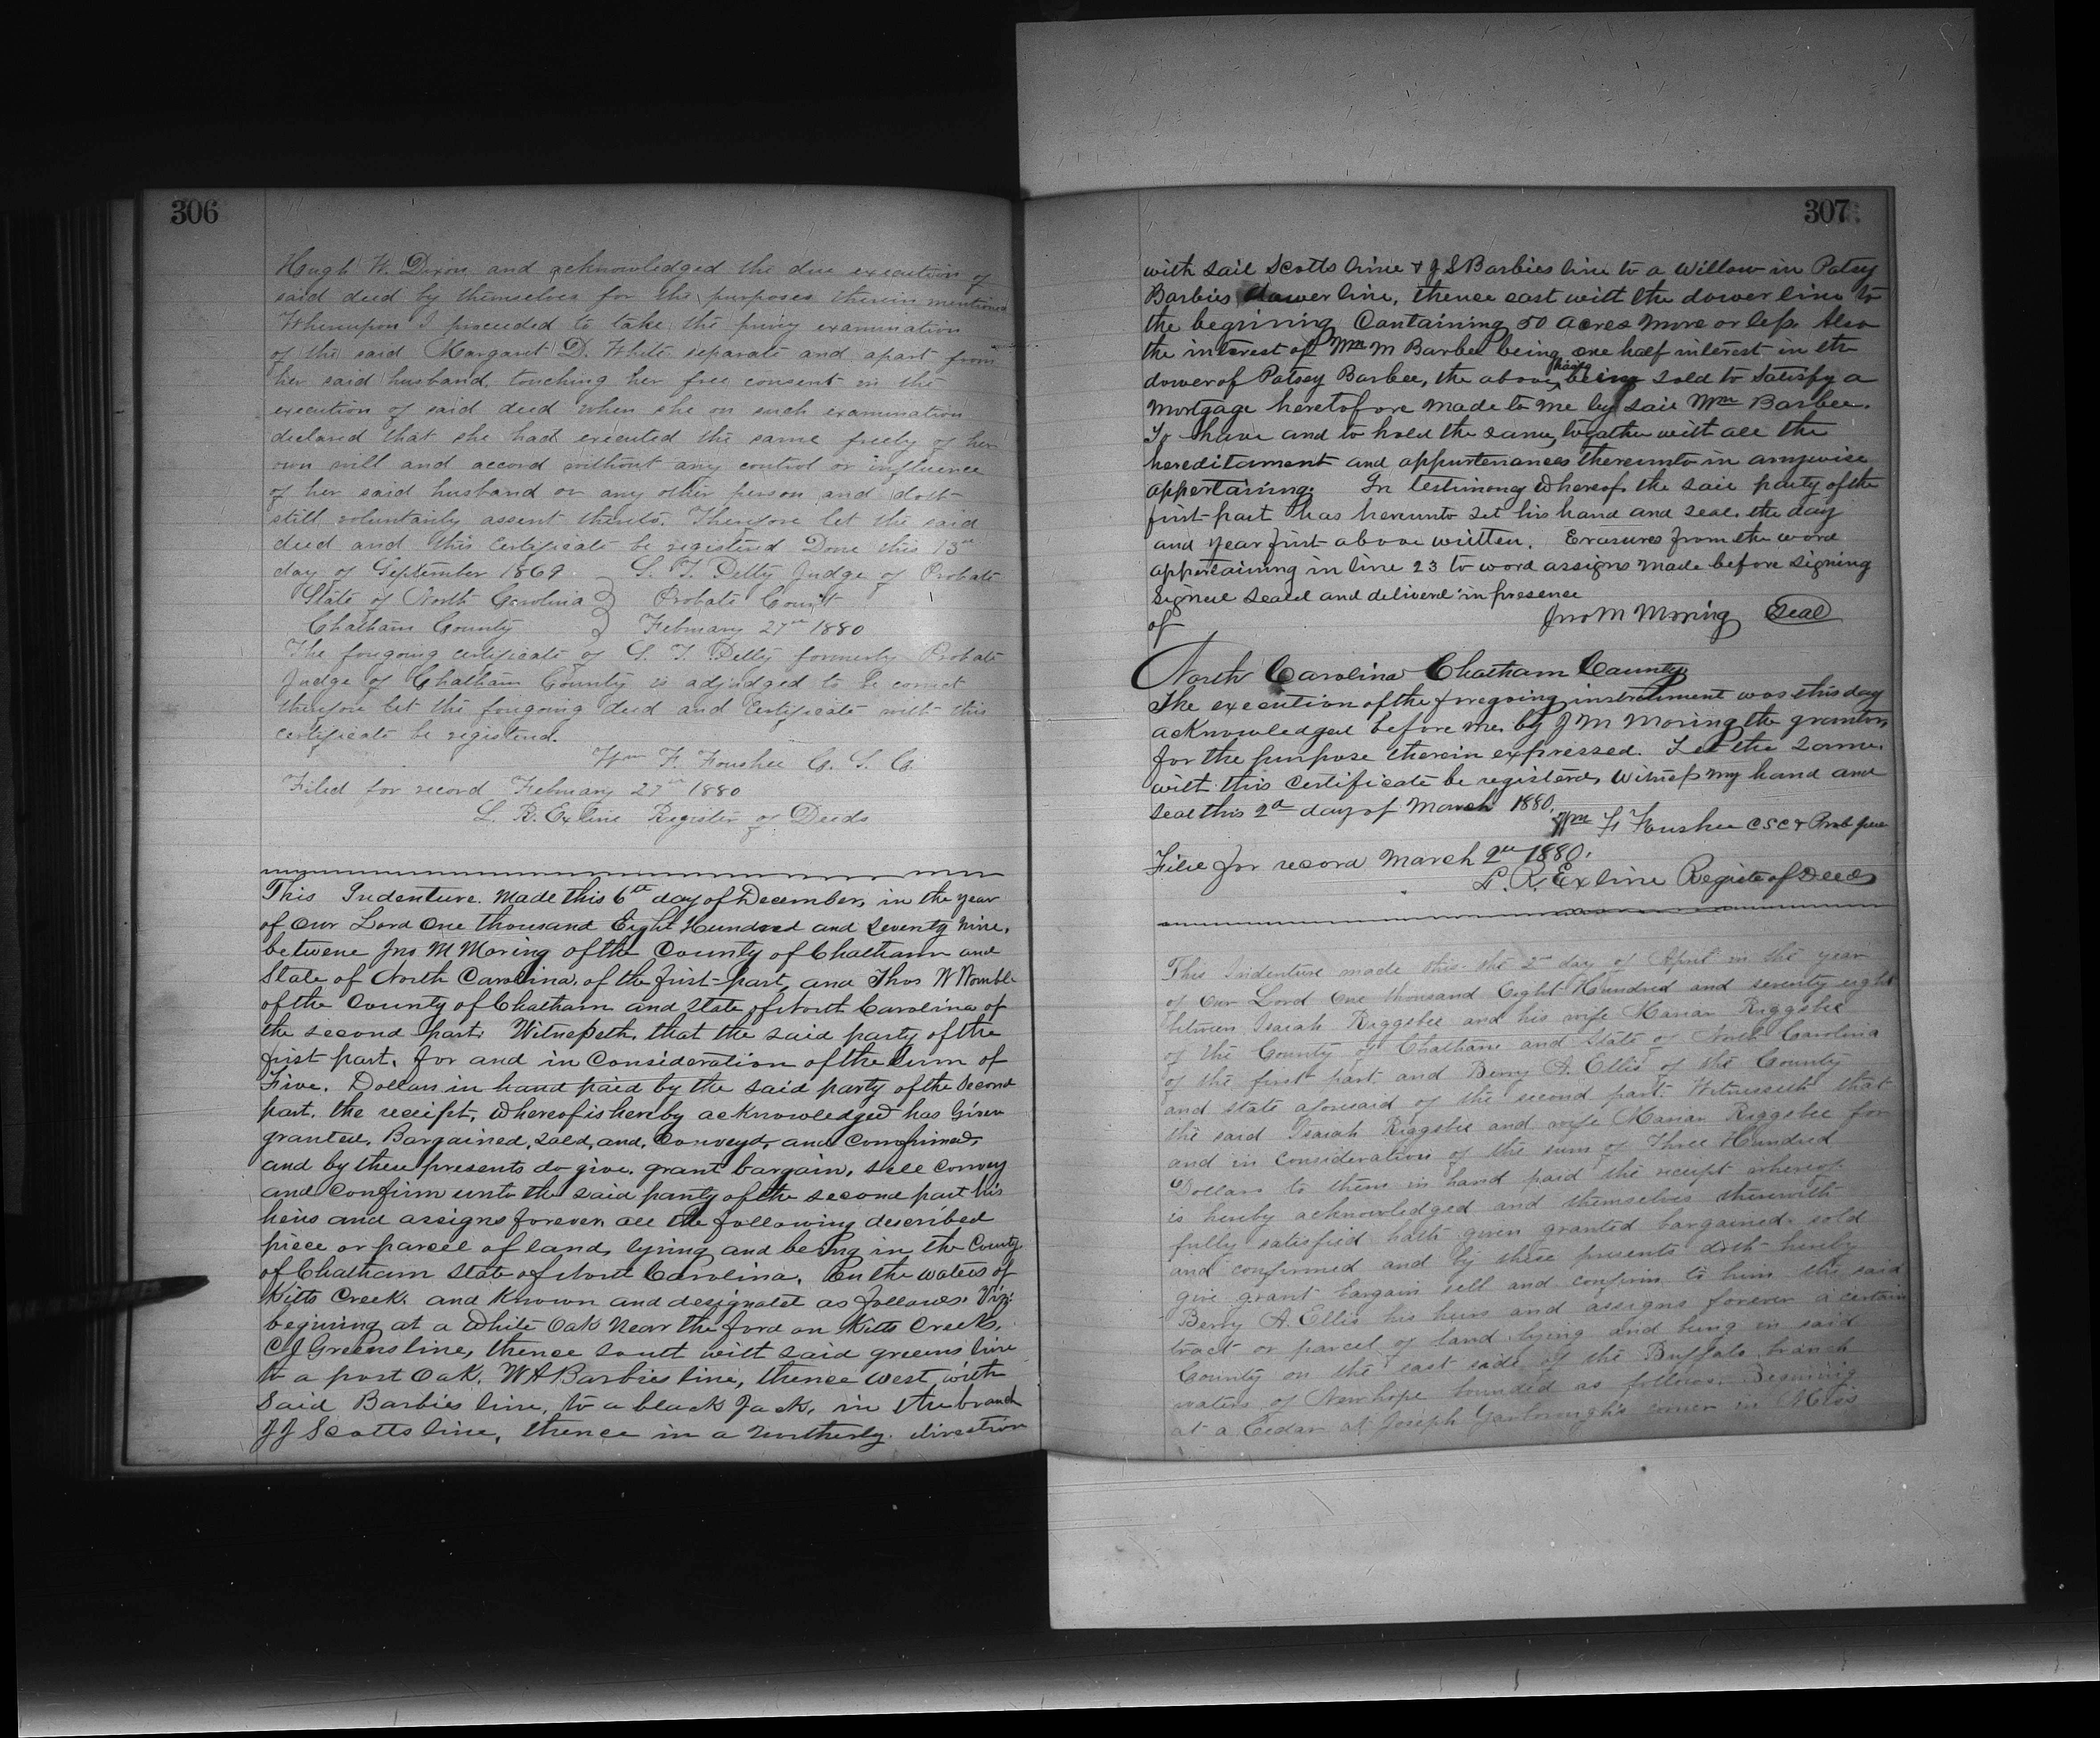 306
Hugh W. Dixon and acknowledged the due execution of
said deed by themselves for the purposes therein mentioned
Whereupon I proceeded to take the privy examination
of the said Margaret D. White separate and apart from
her said husband, touching her free consent in the
execution of said deed when she on such examination
declared that she had executed the same freely of her
own will and accord without any control or influence
of her said husband or any other person and doth
still voluntarily assent thereto. Therefore let the said
deed and this certificate be registerd Done this 13th
day of September 1869 S. T. Petty Judge of Probate
State of North Carolina } Probate Court
Chatham County } February 27th 1880
The foregoing certificate of S. T. Petty formerly Probate
Judge of Chatham County is adjudged to be correct
therefore let the foregoing deed and certificate with this
certificate be registerd.
Wm F. Foushee C. S. C.
Filed for record February 27th 1880
L. R. Exline Register of Deeds
This Indenture. Made this 6th day of December, in the year
of Our Lord One thousand Eight Hundred and Seventy Nine,
betwene Jno M Moring of the County of Chatham and
State of North Carolina, of the first part, and Thos W Womble
of the County of Chatham and State of North Carolina of
the second part. Witnesseth, that the said party of the
first part, for and in Consideration of the Sum of
Five. Dollars in hand paid by the said party of the Second
part. the receipt, whereof is hereby acknowledged has Given
granted, Bargained, sold, and, Conveyd, and Comfirmed,
and by these presents do give, grant bargain, sell convey
and Confirm unto the said party of the second part his
heirs and assigns forever all the following described
piece or parcel of land, lying and being in the County
of Chatham State of North Carolina, On the waters of
Kitts Creek. and Known and designated as follows. Viz:
begining at a White Oak Near the ford on Kitts Creek,
C J Greens line, thence South with said greens line
to a post Oak. W A Barbies line, thence West, with
Said Barbies line, to a black Jack, in the branch
J J Scotts line, thence in a Northerly direction
307
with said Scotts line & J S Barbies line to a Willow in Patsy
Barbies dower line, thence east with the dower line to
the begining Containing 50 acres more or less Also
the interest of Wm M Barbee being one half interest in the
dower of Patsey Barbee, the above being sold to Satisfy a
Mortgage heretofore made to me by said Wm Barbee.
To have and to hold the same, together with all the
hereditament and appurtenances thereunto in anywise
appertaining. In testimony Whereof, the said party of the
first part has hereunto set his hand and seal. the day
and year first above written. Erasures from the word
appertaining in line 23 to word assigns made before signing
Signed Sealed and deliverd in presence
of Jno M Moring Seal
North Carolina Chatham County
The execution of the foregoing instrument was this day
acknowledged before me. by J M Moring the grantor,
for the purpose therein expressed. Let the Same.
with this certificate be registered, Witness my hand and
seal this 2d day of March 1880.
Wm F Foushee CSC & Prob Judge
Filed for record March 2nd 1880.
L. R. Exline Register of Deeds
This indenture made this the 2nd day of April in the year
of Our Lord One thousand Eight Hundred and seventy eight
between Isaiah Riggsbee and his wife Marian Riggsbee
of the County of Chatham and State of North Carolina
of the first part and Berry A. Ellis of the County
and state aforesaid of the second part. Witnesseth that
the said Isaiah Riggsbee and wife Marian Riggsbee for
and in consideration of the sum of Three Hundred
Dollars to them in hand paid the receipt whereof
is hereby acknowledged and themselves therewith
fully satisfied hath given granted bargained sold
and confirmed and by these presents doth hereby
give grant bargain sell and confirm to him the said
Berry A. Ellis his heirs and assigns forever a certain
tract or parcel of land lying and being in said
County on the east side of the Buffalo branch
waters of Newhope bounded as follows. Begining
at a Cedar at Joseph Yarborough's corner in